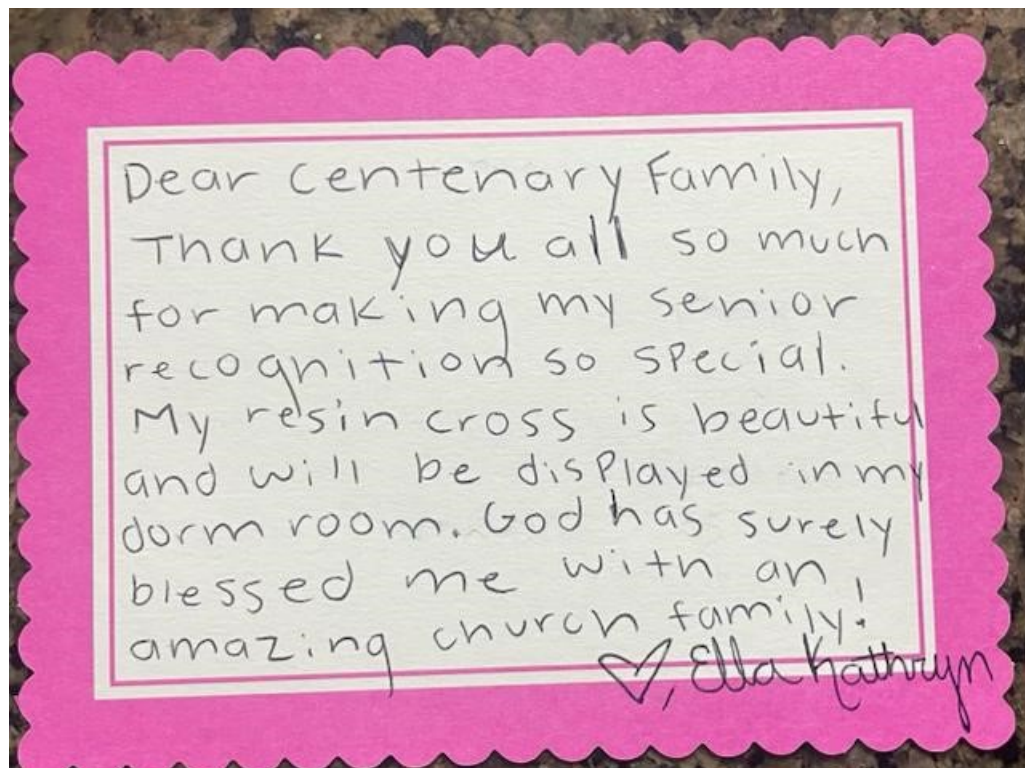 Dear Centenary Family,
Thank you all so much
for making my senior
recognition so special.
My resin cross is beautiful
and will be displayed in my
dorm room. God has surely
blessed me with an
amazing church family!
♡, Ella Kathryn